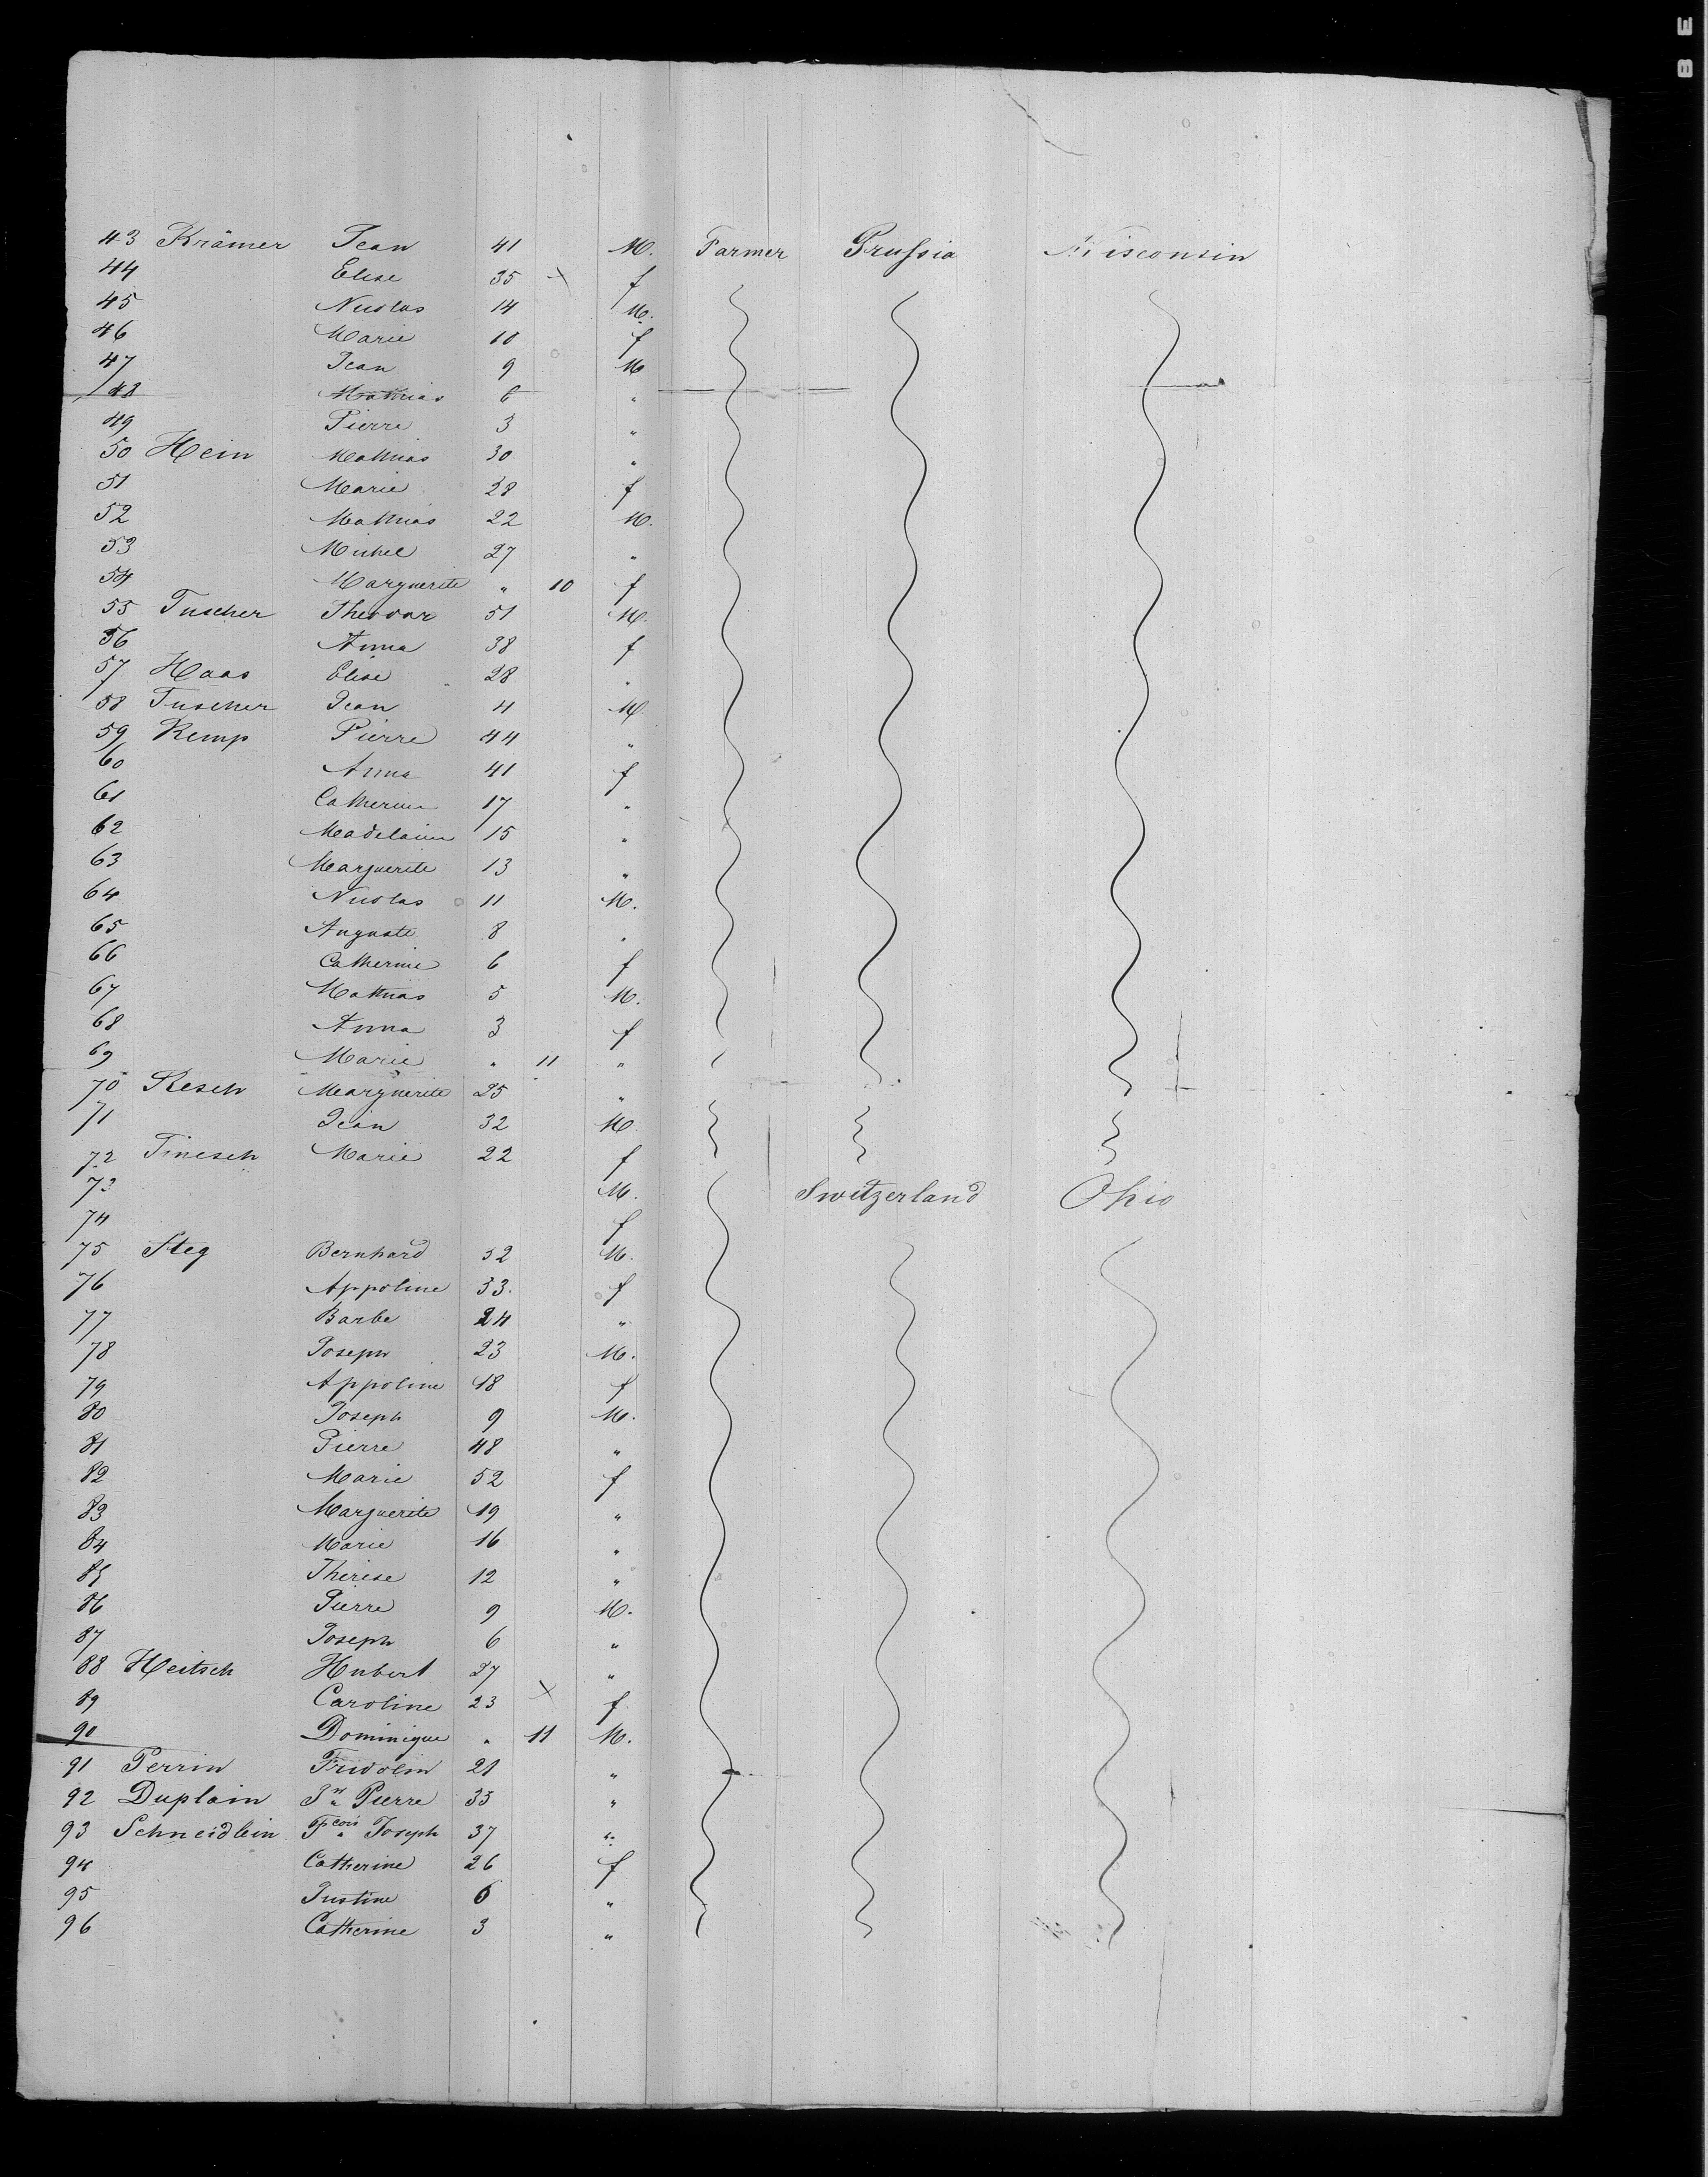 43 Krämer Jean 41 M. Farmer Prussia Wisconsin
44 Elise 35 x f
45 Nicolas 14 M.
46 Marie 10 f
47 Jean 9 M
48 Mathias 6 "
49 Pierre 3 "
50 Hein Mathias 30 "
51 Marie 28 f
52 Mathias 22 M.
53 Michel 27 "
54 Marguerite " 10 f
55 Tuscher Theodor 51 M.
56 Anna 38 f
57 Haas Elise 28 "
58 Tuscher Jean 4 M.
59 Kemp Pierre 44 "
60 Anna 41 f
61 Catherine 17 "
62 Madelaine 15 "
63 Marguerite 13 "
64 Nicolas 11 M.
65 Auguste 8 "
66 Catherine 6 f
67 Mathias 5 M.
68 Anna 3 f
69 Marie " 11 "
70 Resch Marguerite 25 "
71 Jean 32 M
72 Marie 22 f
73 M. Switzerland Ohio
74 f
75 Steg Bernhard 52 M.
76 Appoline 33. f
77 Barbe 24 "
78 Joseph 23 M.
79 Appoline 18 f
80 Joseph 9 M.
81 Pierre 48 "
82 Marie 52 f
83 Marguerite 19 "
84 Marie 16 "
85 Thérèse 12 "
86 Pierre 9 M.
87 Joseph 6 "
88 Heitsch Hubert 27 "
89 Caroline 23 x f
90 Dominique " 11 M.
91 Perrin Fridolin 21 "
92 Duplain Jn Pierre 33 "
93 Schneidlein Fcois Joseph 37 "
94 Catherine 26 f
95 Justine 6 "
96 Catherine 3 "